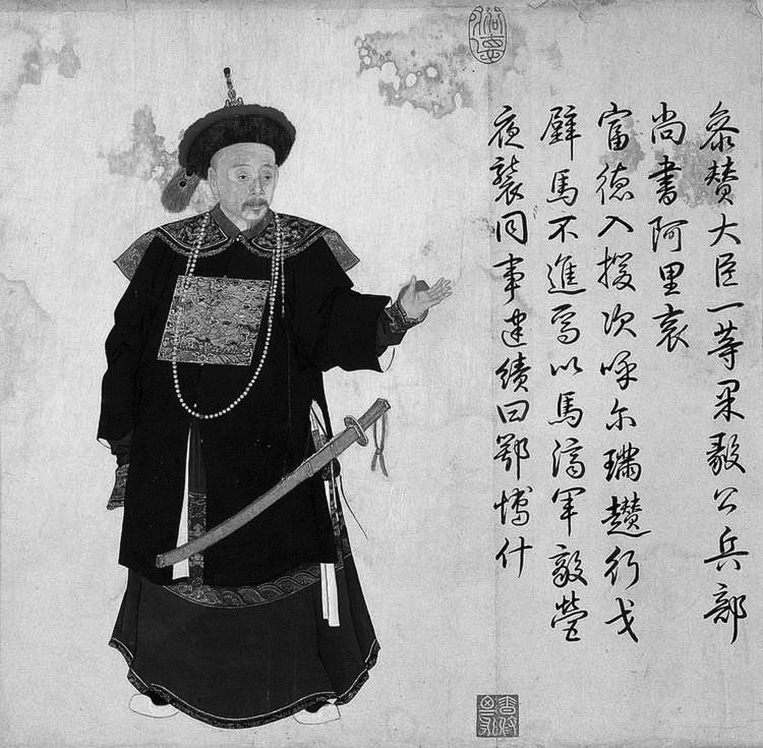 叅賛大臣一等果毅公兵部
尚書阿里衮
富德入援次呼尔璊趲行戈
壁馬不進焉以馬濟軍敵營
夜襲同事建績曰鄂愽什